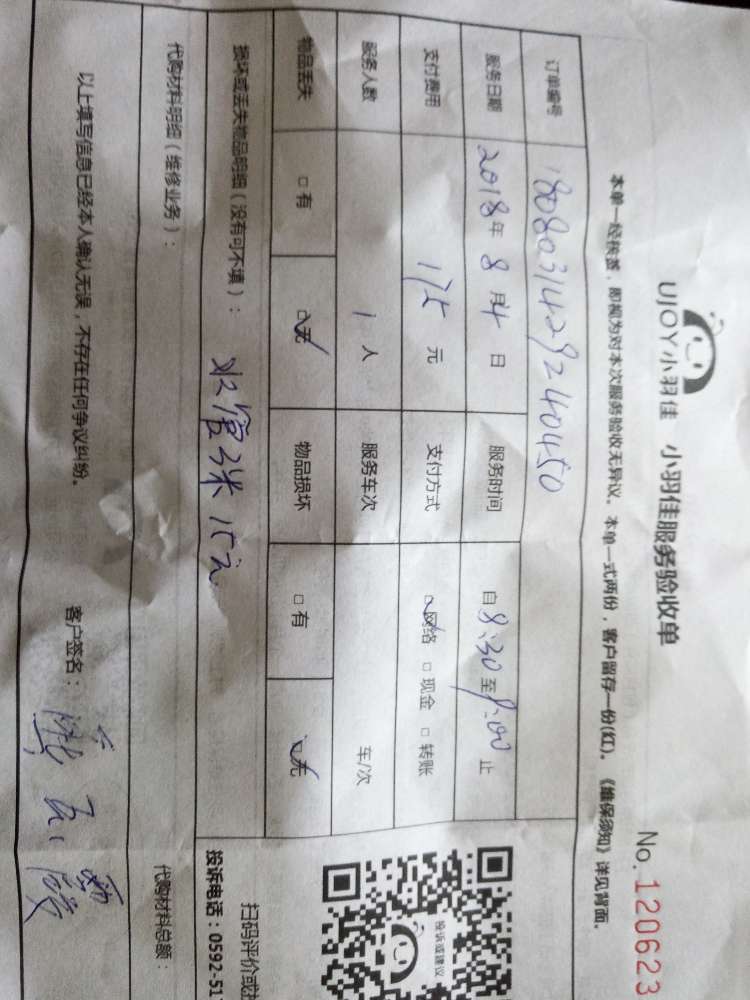 UJOY小羽佳 小羽佳服务验收单
No. 120623
本单一经核签，即视为对本次服务验收无异议。本单一式两份，客户留存一份(红)。《维保须知》详见背面。
订单编号 1808031429240450
服务日期 2018年8月4日 服务时间 自8:30至9:00止
支付费用 175元 支付方式 □网络 □现金 □转账
服务人数 1人 服务车次 车/次
物品丢失 □有 □无 物品损坏 □有 □无
损坏或丢失物品明细（没有可不填）：
水管3米 15元
代购材料明细（维修业务）：
代购材料总额：
以上填写信息已经本人确认无误，不存在任何争议纠纷。
客户签名：
投诉或建议
扫码评价或
投诉电话：0592-51